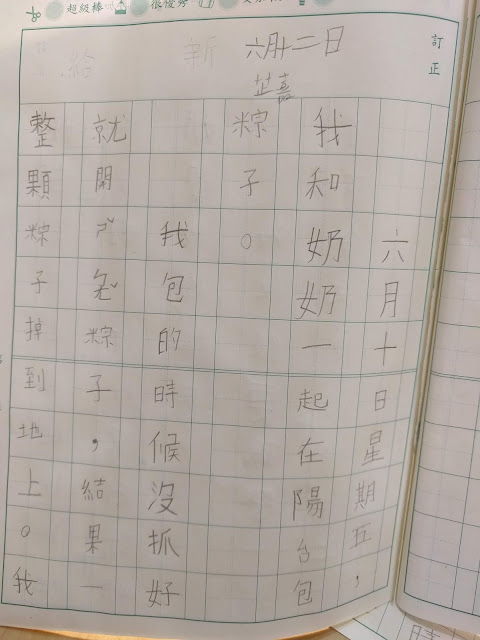 超級棒 很優秀
訂正
六月十二日
芷嘉
六月十日星期五，
我和奶奶一起在陽台包
粽子。
我包的時候沒抓好
就開ㄕˇ包粽子，結果一
整顆粽子掉到地上。我